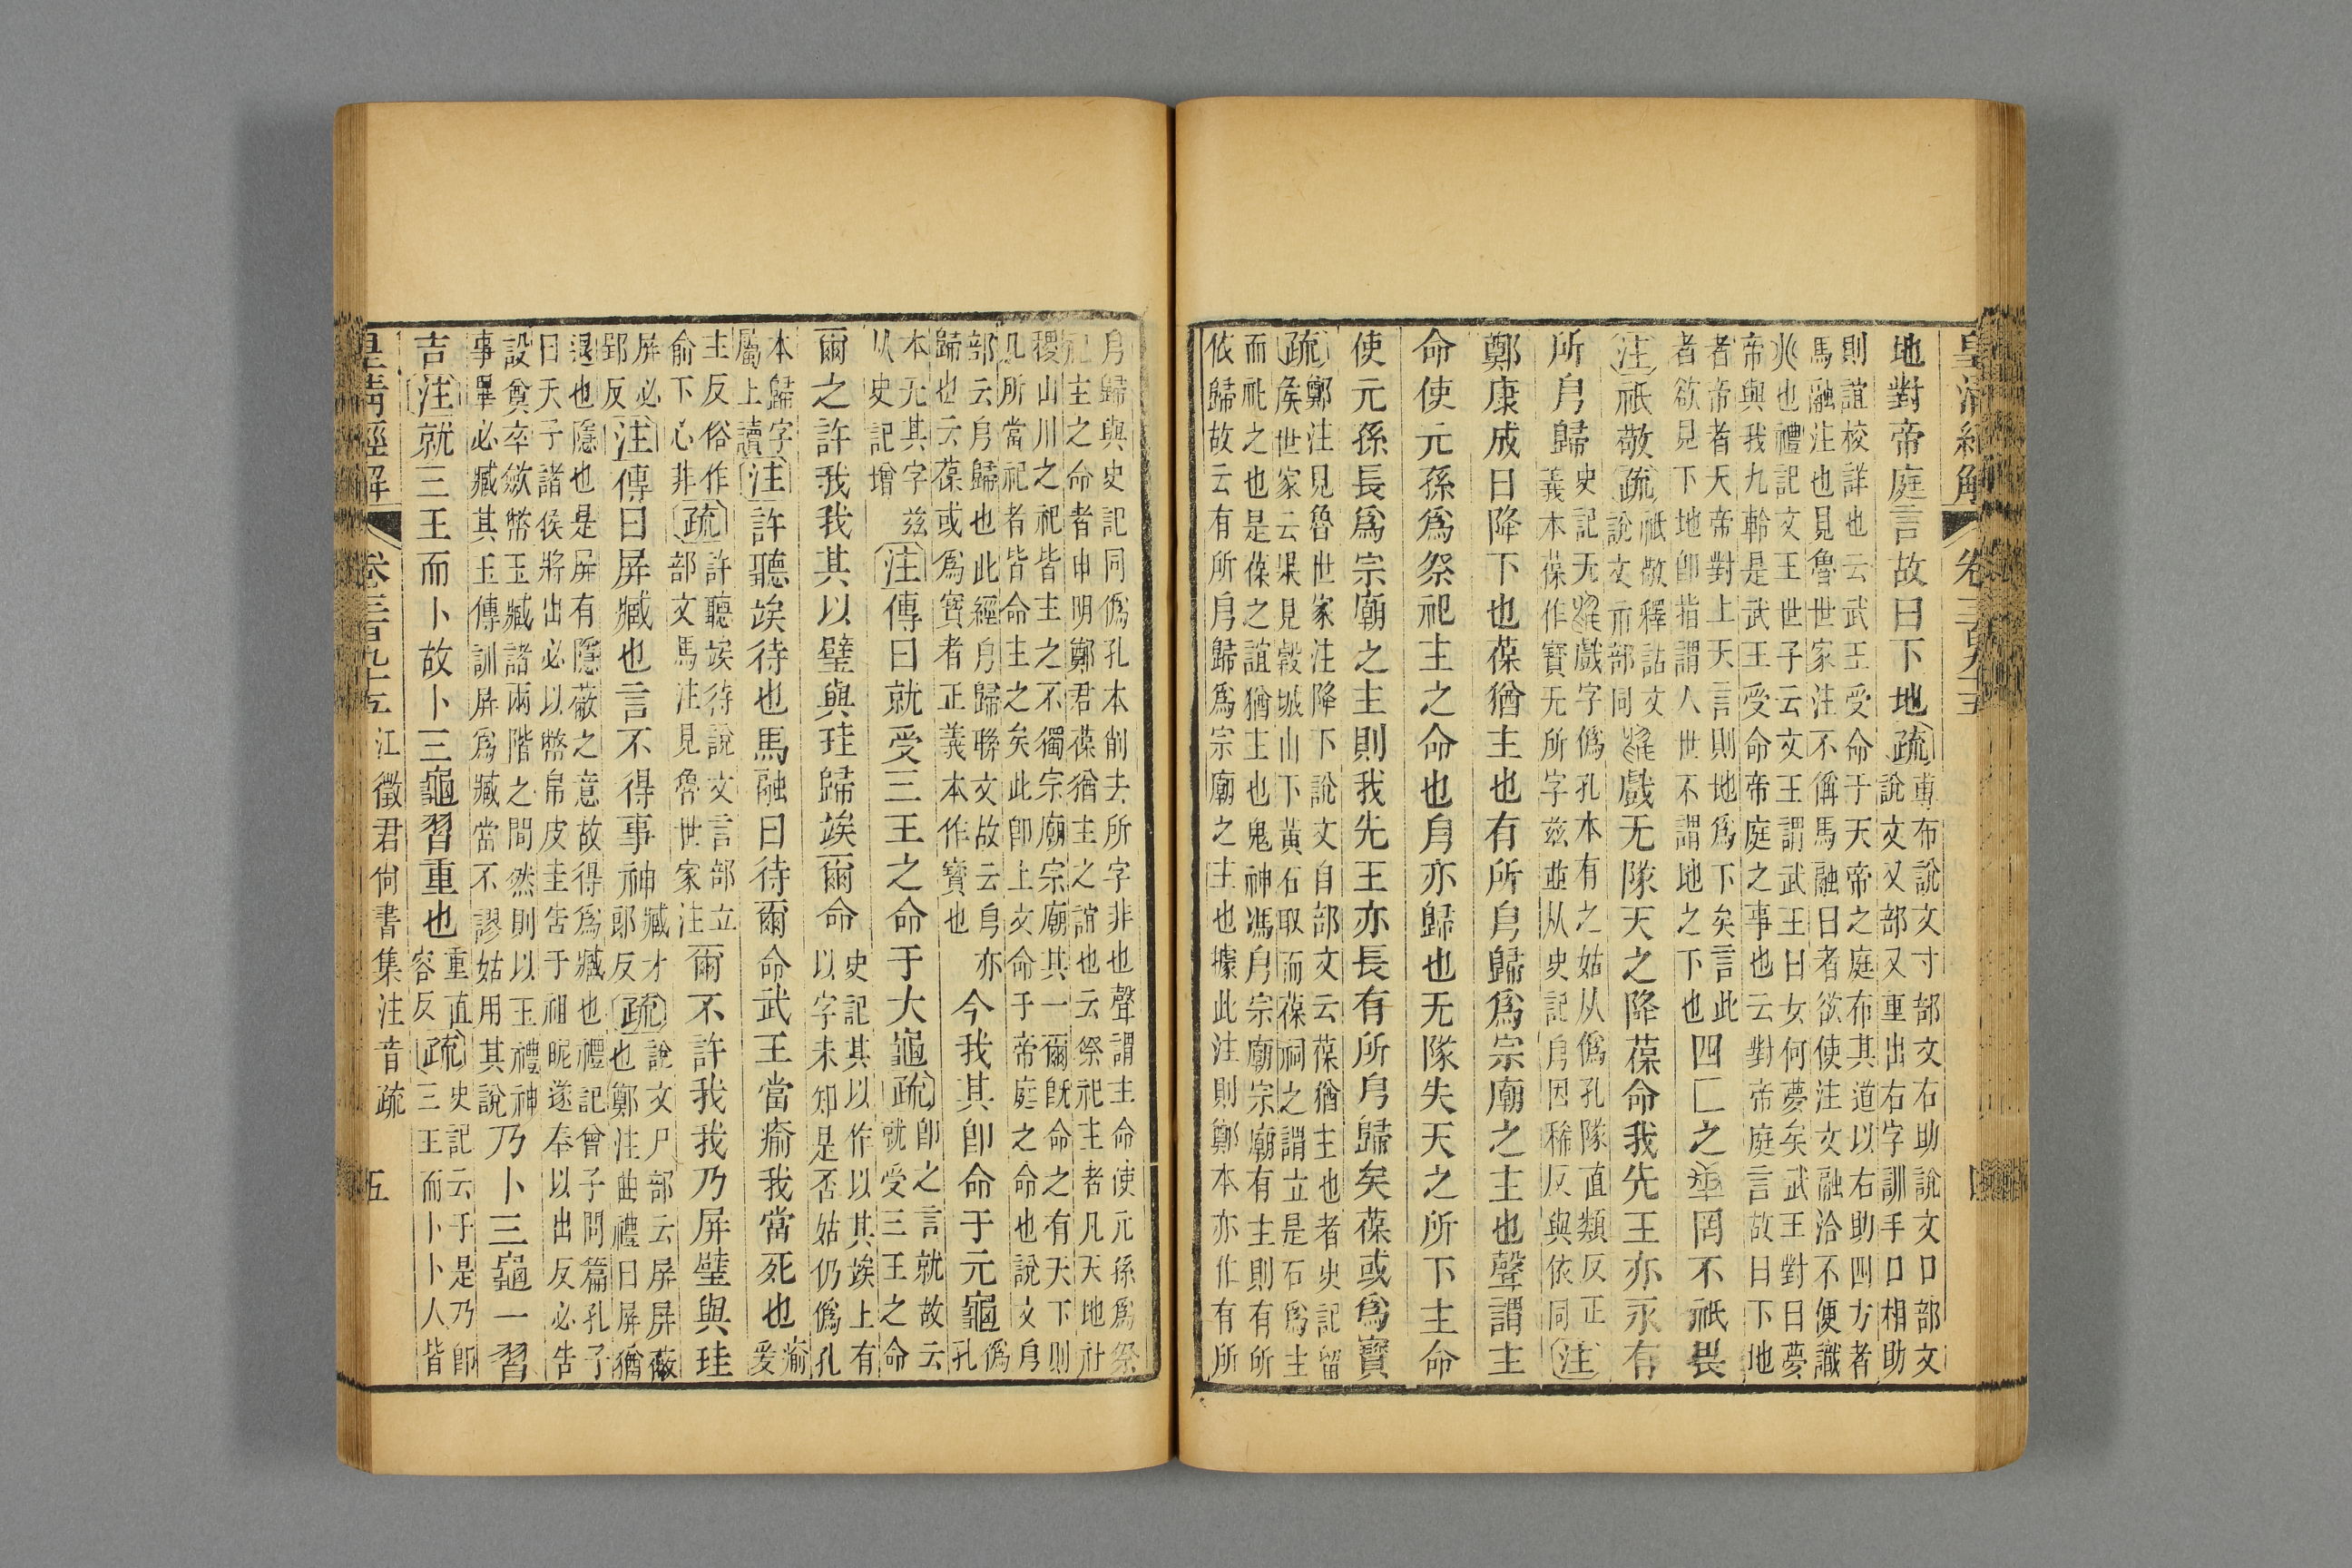 皇清經解 卷三百九十五 四
地對帝庭言故曰下地疏專布說文寸部文右助說文口部文
說文又部又重出右字訓手口相助
則誼校詳也云武王受命于天帝之庭布其道以右助四方者
馬融注也見魯世家注不偁馬融曰者欲使注文融洽不便識
兆也禮記文王世子云文王謂武王曰女何夢矣武王對曰夢
帝與我九齡是武王受命帝庭之事也云對帝庭言故曰下地
者帝者天帝對上天言則地爲下矣言此
者欲見下地卽指謂人世不謂地之下也四匚之𠦶罔不祇畏
注祇敬疏祇敬釋詁文
說文而部同戲无隊天之降葆命我先王亦永有
所㠯歸史記无戲字僞孔本有之姑从僞孔隊直類反正
義本葆作寶无所字兹並从史記㠯因稀反與依同注
鄭康成曰降下也葆猶主也有所㠯歸爲宗廟之主也聲謂主
命使元孫爲祭祀主之命也㠯亦歸也无隊失天之所下主命
使元孫長爲宗廟之主則我先王亦長有所㠯歸矣葆或爲寶
疏鄭注見魯世家注降下說文𨸏部文云葆猶主也者史記留
侯世家云果見穀城山下黃石取而葆祠之謂立是石爲主
而祇之也是葆之誼猶主也鬼神馮㠯宗廟宗廟有主則有所
依歸故云有所㠯歸爲宗廟之主也據此注則鄭本亦作有所
㠯歸與史記同僞孔本削去所字非也聲謂主命使元孫爲祭
祀主之命者申明鄭君葆猶主之誼也云祭祀主者凡天地社
稷山川之祀皆主之不獨宗廟宗廟其一爾旣命之有天下則
凡所當祀者皆命主之矣此卽上文命于帝庭之命也說文㠯
部云㠯歸也此經㠯歸聯文故云㠯亦
歸也云葆或爲寶者正義本作寶也今我其卽命于元龜僞
孔
本无其字兹
从史記增注傳曰就受三王之命于大龜疏卽之言就故云
就受三王之命
爾之許我我其以璧與珪歸竢爾命史記其以作以其竢上有
以字未知是否姑仍僞孔
本歸字
屬上讀注許聽竢待也馬融曰待爾命武王當瘉我當死也瘉
爰
主反俗作
俞下心非疏許聽竢待說文言部立
部文馬注見魯世家注爾不許我我乃屏璧與珪
屏必
郢反注傳曰屏臧也言不得事神臧才
郎反疏說文尸部云屏屏蔽
也鄭注曲禮曰屏猶
退也隱也是屏有隱蔽之意故得爲臧也禮記曾子問篇孔子
曰天子諸侯將出必以幣帛皮圭告于祖昵遂奉以出反必告
設奠卒斂幣玉臧諸兩階之間然則以玉禮神
事畢必臧其玉傳訓屏爲臧當不謬姑用其說乃卜三龜一習
吉注就三王而卜故卜三龜習重也重直
容反疏史記云于是乃卽
三王而卜卜人皆
皇清經解 卷三百九十五 江徵君尙書集注音疏 五